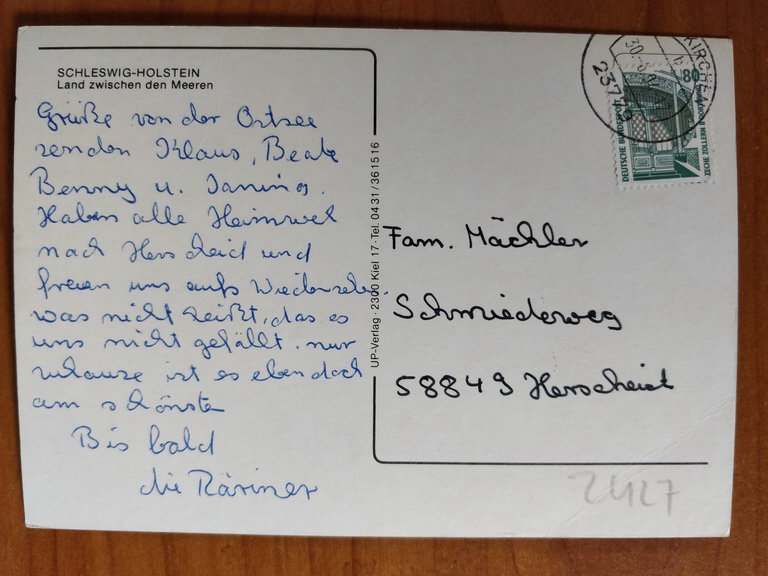 SCHLESWIG-HOLSTEIN
Land zwischen den Meeren
Grüße von der Ostsee
senden Klaus, Beate
Benny u. Janina.
Haben alle Heimweh
nach Herscheid und
freuen uns aufs Wiedersehen.
was nicht heißt, das es
uns nicht gefällt. nur
zuhause ist es eben doch
am schönsten
Bis bald
die
UP-Verlag · 2300 Kiel 17 · Tel. 04 31 / 36 15 16
80
DEUTSCHE BUNDESPOST
ZECHE ZOLLERN II
23779
Fam. Mächler
Schmiedeweg
58849 Herscheid
2427